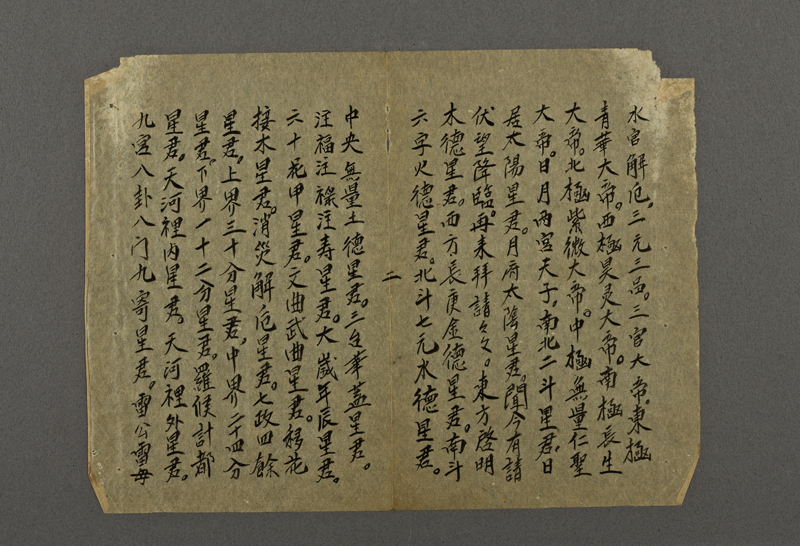 水官解厄。三元三品。三宮大帝。東極
青華大帝。西極昊灵大帝。南極長生
大帝。北極紫微大帝。中極無量仁聖
大帝。日月两宮天子。南北二斗星君。日
居太陽星君。月府太陰星君。聞今有請
伏望降臨。再来拜請々々。東方啓明
木德星君。西方長庚金德星君。南斗
六字火德星君。北斗七元水德星君。
二
中央無量土德星君。三台華蓋星君。
注福注祿注寿星君。大歲年辰星君。
六十花甲星君。文曲武曲星君。移花
接木星君。消災解厄星君。七政四餘
星君。上界三十分星君。中界二十四分
星君。下界一十二分星君。羅候計都
星君。天河裡内星君。天河裡外星君。
九宮八卦八门九寄星君。雷公雷母